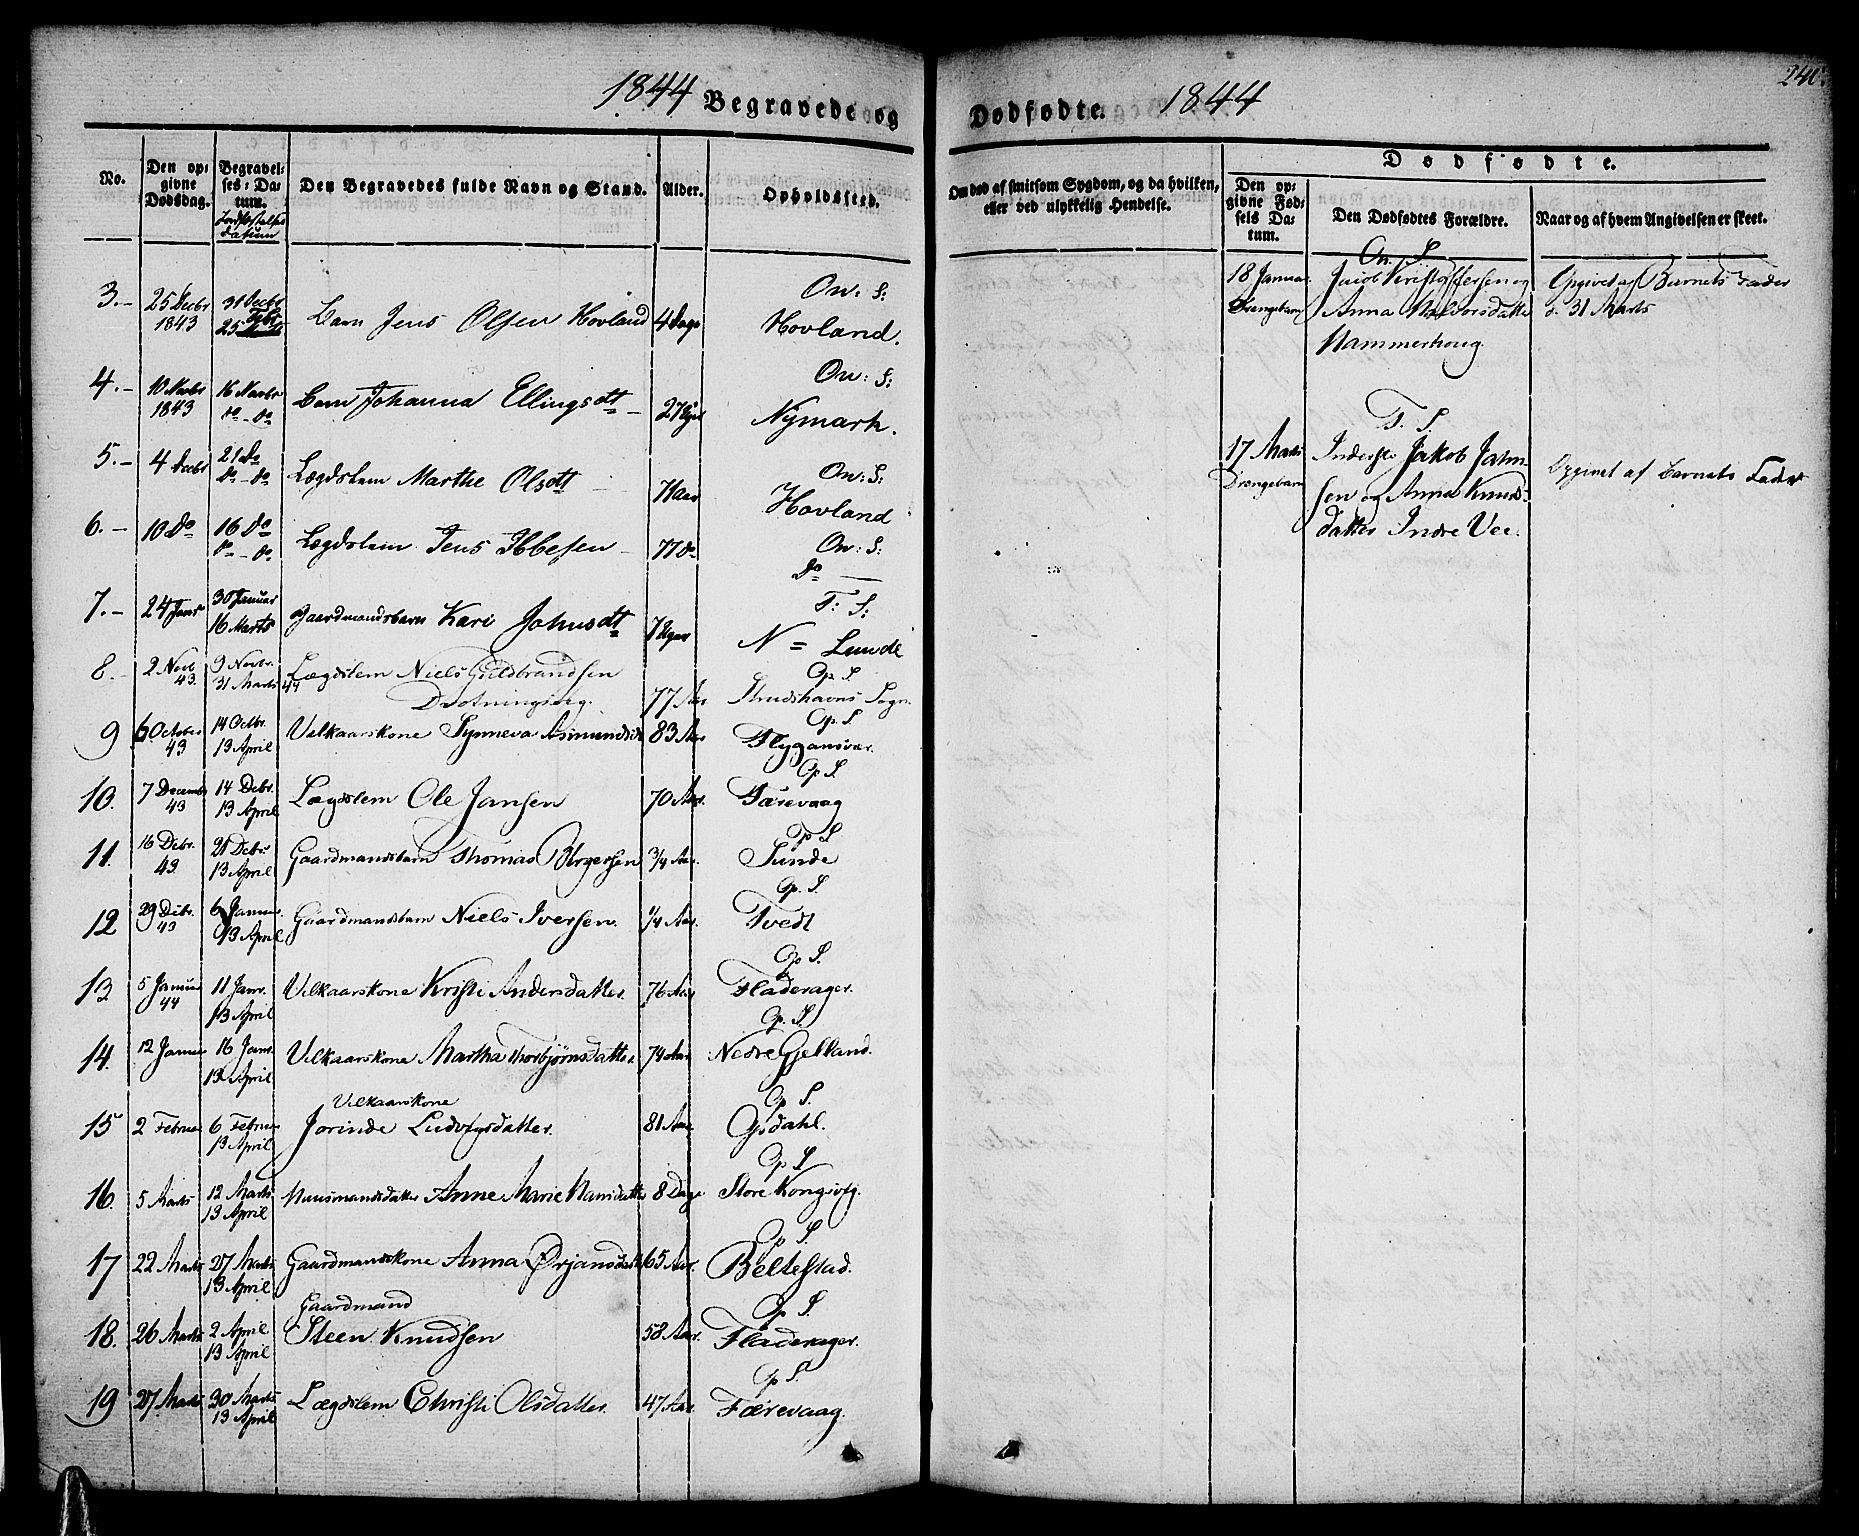 1844 Begravede og
Dødfødte. 1844
240.
No.
Den op-
givne
Dødsdag.
Begravel-
ses- Da-
tum.
Jordfæstelses
datum
Den Begravedes fulde Navn og Stand.
Alder.
Opholdssted.
Om død af smitsom Sygdom, og da hvilken,
eller ved ulykkelig Hendelse.
Dødfødte.
Den op-
givne Fød-
sels Da-
tum.
Den Dødfødtes Forældre.
Naar og af hvem Angivelsen er skeet.
3.- 25 Decbr 1843 31 Decbr 25 Febr Barn Jens Olsen Hovland 4 Dage On: S: Hovland.
4.- 10 Novbr 1843 16 Novbr do - do Barn Johanna Ellingsdtr 27 Uger On: S: Nymark.
5.- 4 Decbr 21 Do do - do Lægdslem Marthe Olsdtr 71 aar On: S: Hovland
6.- 10 Do 16 Do do - do Lægdslem Jens Ibbesen 77 do On: S: do
7.- 24 Janr 30 Januar 16 Marts Gaardmandsbarn Kari Johnsdtr 7 Uger F: S: N = Lunde
8.- 2 Novb 43 9 Novbr. 31 Marts 44 Lægdslem Niels Guldbrandsen Drotningsvig. 77 Aar Op. S. Strudshavns Sogn.
9 6 October 43 14 Octbr. 13 April Vilkaarskone Synneva Asmundsdt 83 Aar Op. S. Flygansvær.
10. 7 December 43 14 Debr. 13 April Lægdslem Ole Jansen 70 Aar. Op S. Færevaag
11. 16 Debr. 43 21 Debr. 13 April Gaardmandsbarn Thomas Børgersen 3/4 Aar. Op S. Sunde
12 29 Debr. 43 6 Januar. 13 April Gaardmandsbarn Niels Iversen. 1/4 Aar. Op. S. Tvedt
13 5 Januar 44 11 Janr. 13 April Vilkaarskone Kristi Andersdatter. 76 Aar Op S. Fladerager.
14. 12 Januar 16 Janr. 13 April Vilkaarskone Martha Thorbjørnsdatter. 74 Aar. Op. S. Nedre Gjelland.
15 2 Februar 6 Februar 13 April Vilkaarskone Jorinde Ludvigsdatter. 81 Aar Op S. Opsdahl.
16. 5 Marts 12 Marts 13 April Huusmandsdatter Anne Marie Hansdatter 8 Dage Op S Store Kongsvig.
17 22 Marts 27 Marts 13 April Gaardmandskone Anna Ørjansdatt 65 Aar. Op S. Beltestad.
18. 26 Marts 2 April 13 April Gaardmand Steen Knudsen 58 Aar. Op S. Fladerager.
19 27 Marts 30 Marts 13 April Lægdslem Christi Olsdatter. 47 Aar. Op S. Færevaag.
18 Januar Drengebarn On. S. Jacob Kristoffersen og Anna Halvorsdatter Hammerhoug. Opgivet af Barnets Fader d. 31 Marts
17 Marts Drengebarn F. S. Inderste Jakob Jahn-
sen og Anna Knuds-
datter Indre Vee. Opgivet af Barnets Fader